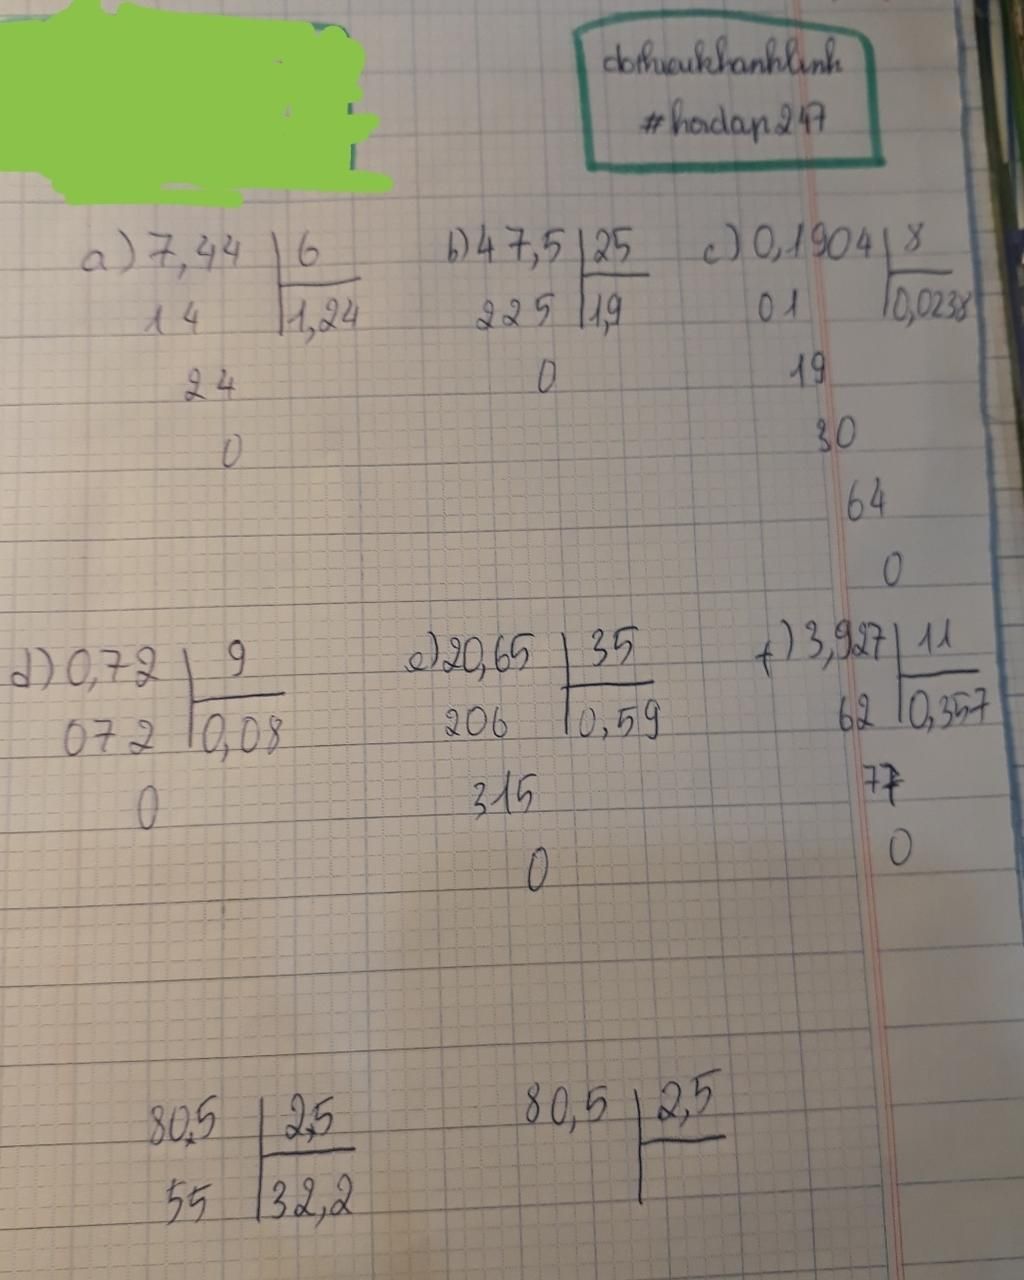 dothicukhanhlinh
#hoidap247
a) 7,44 6 b) 47,5 25 c) 0,1904 8
14 1,24 225 1,9 01 0,0238
24 0 19
0 30
64
0
d) 0,72 9 e) 20,65 35 f) 3,927 11
072 0,08 206 0,59 62 0,357
0 315 77
0 0
80,5 2,5 80,5 2,5
55 32,2